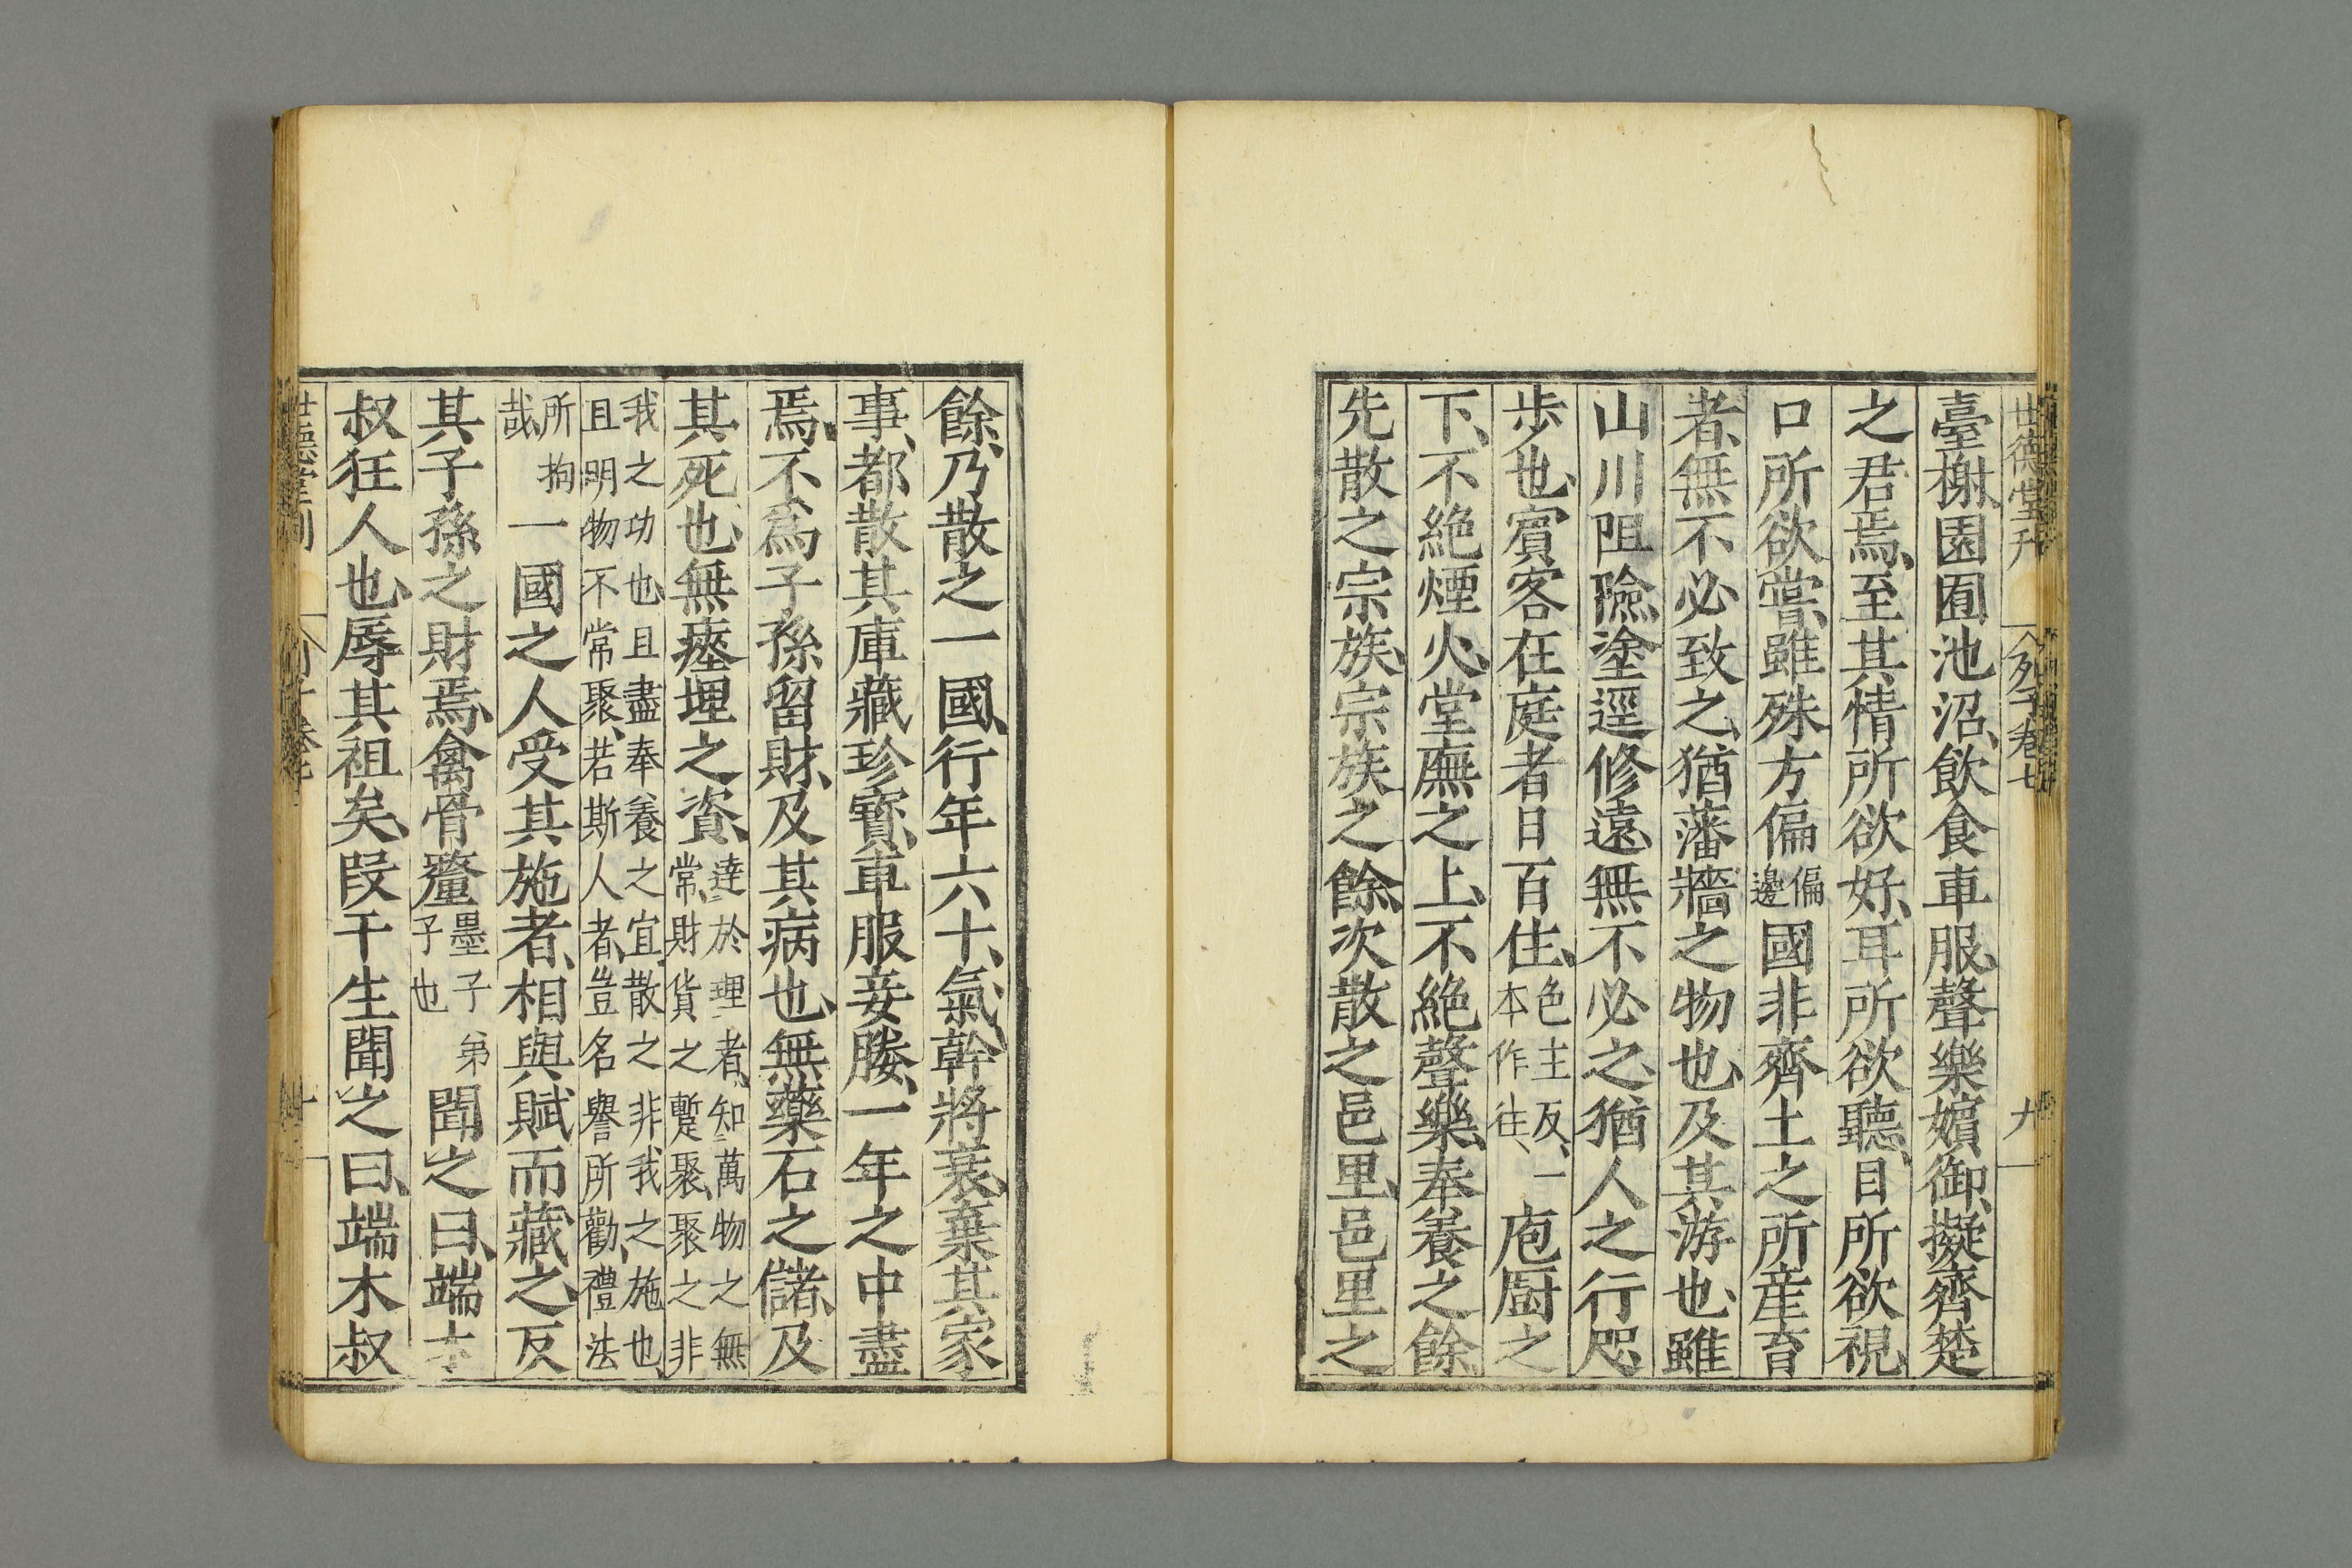 世德堂刊 列子卷七 九
臺榭、園囿池沼、飲食車服、聲樂嬪御、擬齊楚
之君焉、至其情所欲好、耳所欲聽、目所欲視、
口所欲嘗、雖殊方偏偏邊國非齊土之所産育
者、無不必致之、猶藩牆之物也、及其游也、雖
山川阻險、塗逕修遠、無不必之、猶人之行咫
步也、賓客在庭者日百住、色主反、一本作往、庖厨之
下、不絶煙火、堂廡之上、不絶聲樂、奉養之餘、
先散之宗族、宗族之餘、次散之邑里、邑里之
餘、乃散之一國、行年六十、氣幹將衰、棄其家
事、都散其庫藏珍寶、車服妾媵、一年之中盡
焉、不爲子孫留財、及其病也、無藥石之儲、及
其死也、無瘞埋之資、達於理者、知萬物之無常、財貨之蹔聚、聚之非
我之功也、且盡奉養之宜、散之非我之施也、且明物不常聚、若斯人者、豈名譽所勸、禮法
所拘哉、一國之人受其施者、相與賦而藏之、反
其子孫之財焉、禽骨釐墨子弟子也聞之曰、端木
叔狂人也、辱其祖矣、段干生聞之曰、端木叔
世德堂刊 列子卷七